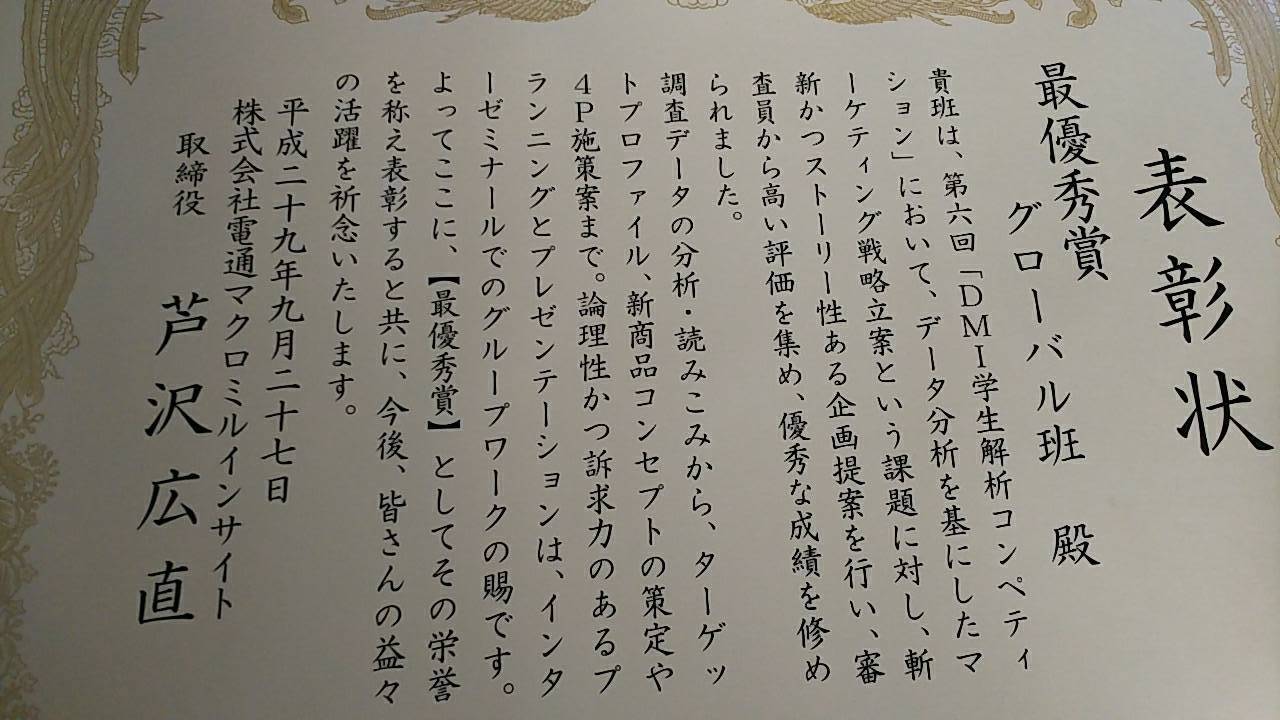 表彰状
最優秀賞
グローバル班 殿
貴班は、第六回「DMI学生解析コンペティ
ション」において、データ分析を基にしたマ
ーケティング戦略立案という課題に対し、斬
新かつストーリー性ある企画提案を行い、審
査員から高い評価を集め、優秀な成績を修め
られました。
調査データの分析・読みこみから、ターゲッ
トプロファイル、新商品コンセプトの策定や
4P施策案まで。論理性かつ訴求力のあるプ
ランニングとプレゼンテーションは、インタ
ーゼミナールでのグループワークの賜です。
よってここに、【最優秀賞】としてその栄誉
を称え表彰すると共に、今後、皆さんの益々
の活躍を祈念いたします。
平成二十九年九月二十七日
株式会社電通マクロミルインサイト
取締役 芦沢広直